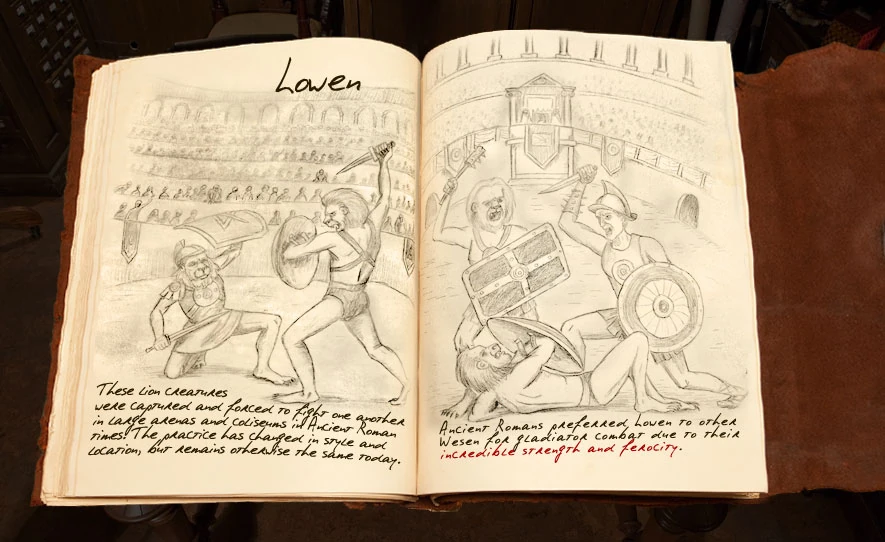 Lowen
These Lion Creatures
were captured and forced to fight one another
in large arenas and coliseums in Ancient Roman
times. The practice has changed in style and
location, but remains otherwise the same today.
Ancient Romans preferred Lowen to other
Wesen for gladiator combat due to their
incredible strength and ferocity.